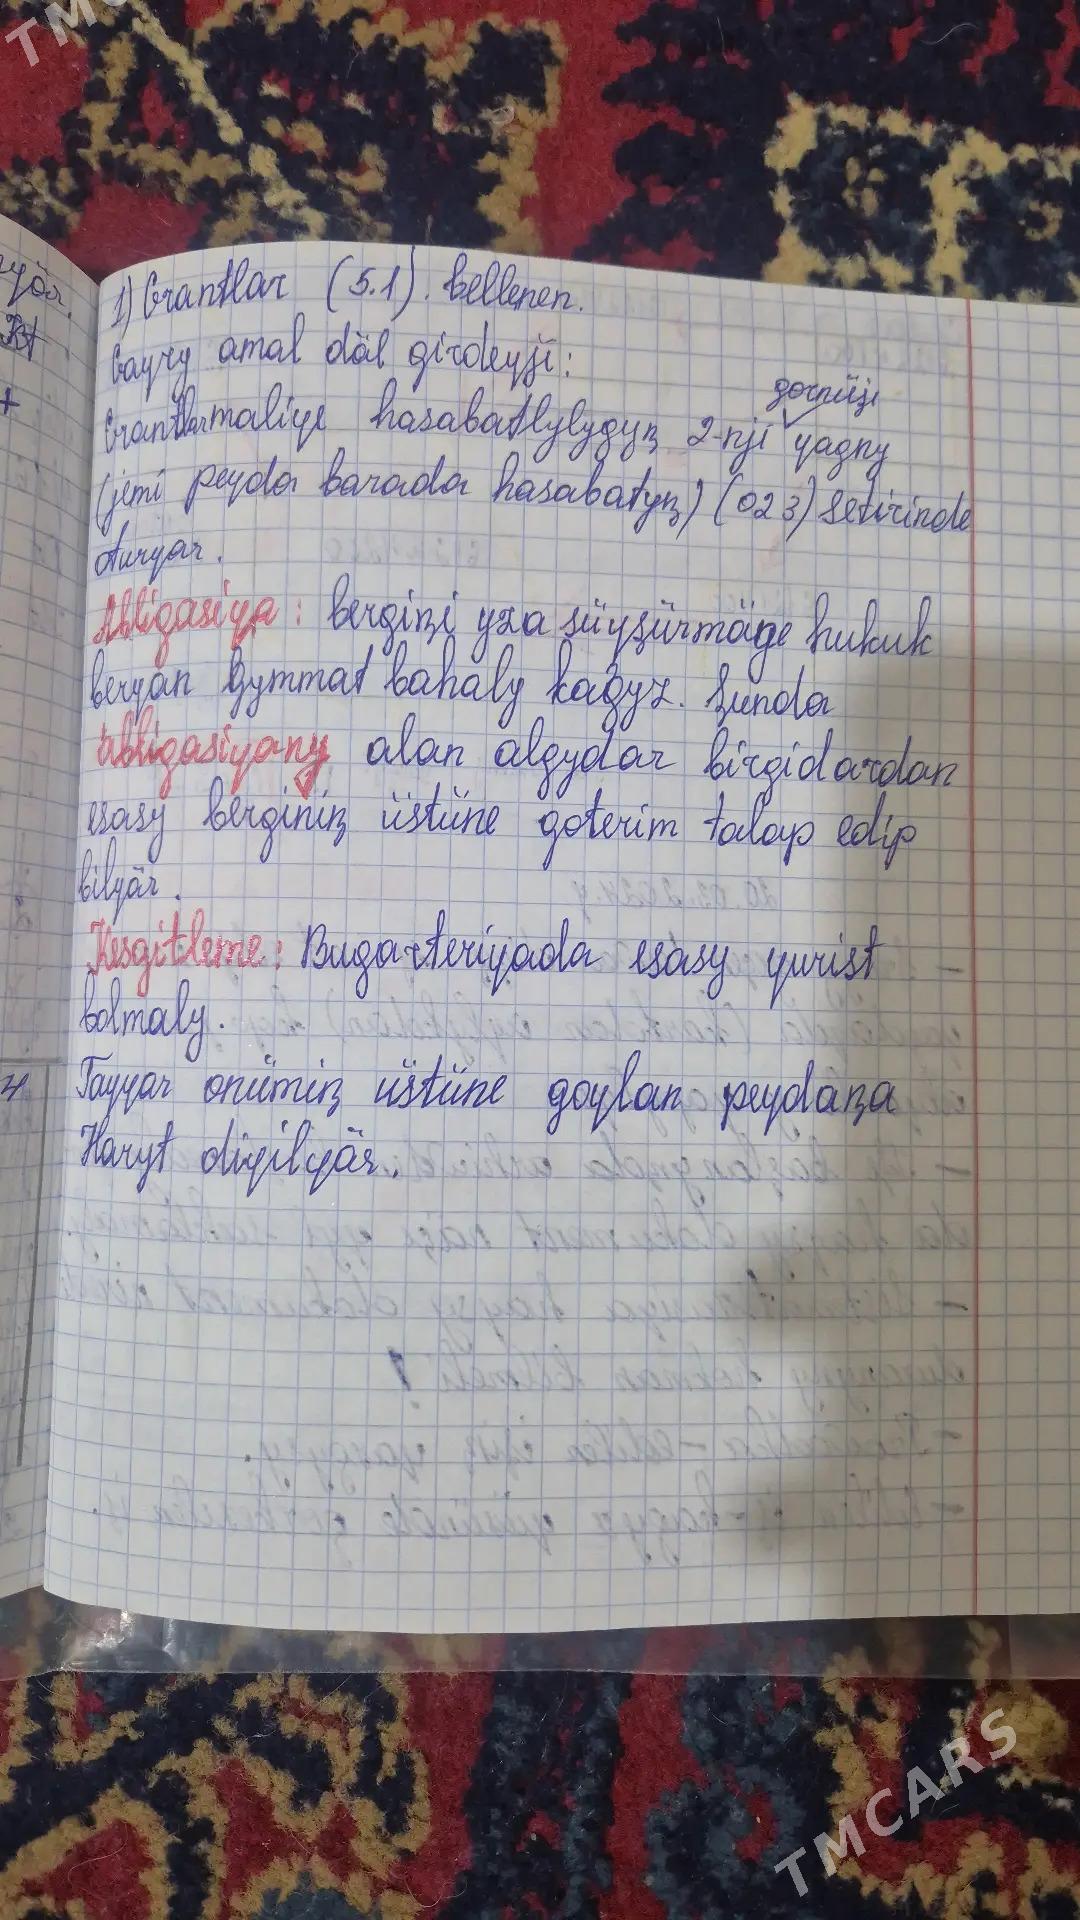 1) Grantlar (5.1). bellenen.
Gaýry amal däl girdeýji:
görnüşi
Grantlar maliýe hasabatlylygyň 2-nji ýagny
(jemi peýda barada hasabatyň) (023) setirinde
durýar.
Abligasiýa: bergiňi yza süýşürmäge hukuk
berýan gymmat bahaly kagyz. Şunda
abligasiýany alan algydar bergidardan
esasy berginiň üstüne göterim talap edip
bilýär.
Kesgitleme: Bugalteriýada esasy ýurist
bolmaly.
Taýýar önümiň üstüne goýlan peýdaňa
Haryt diýilýär.
TMCARS